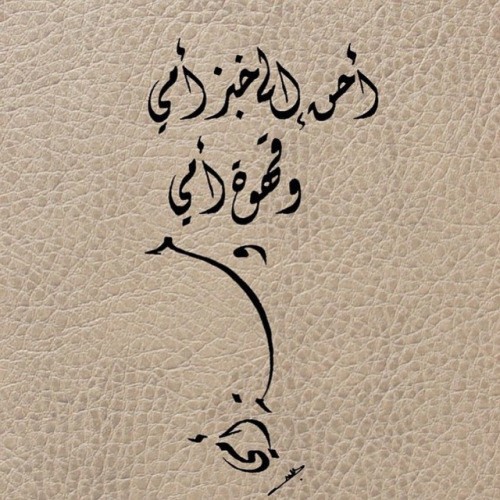 أحن إلى خبز أمي
وقهوة أمي